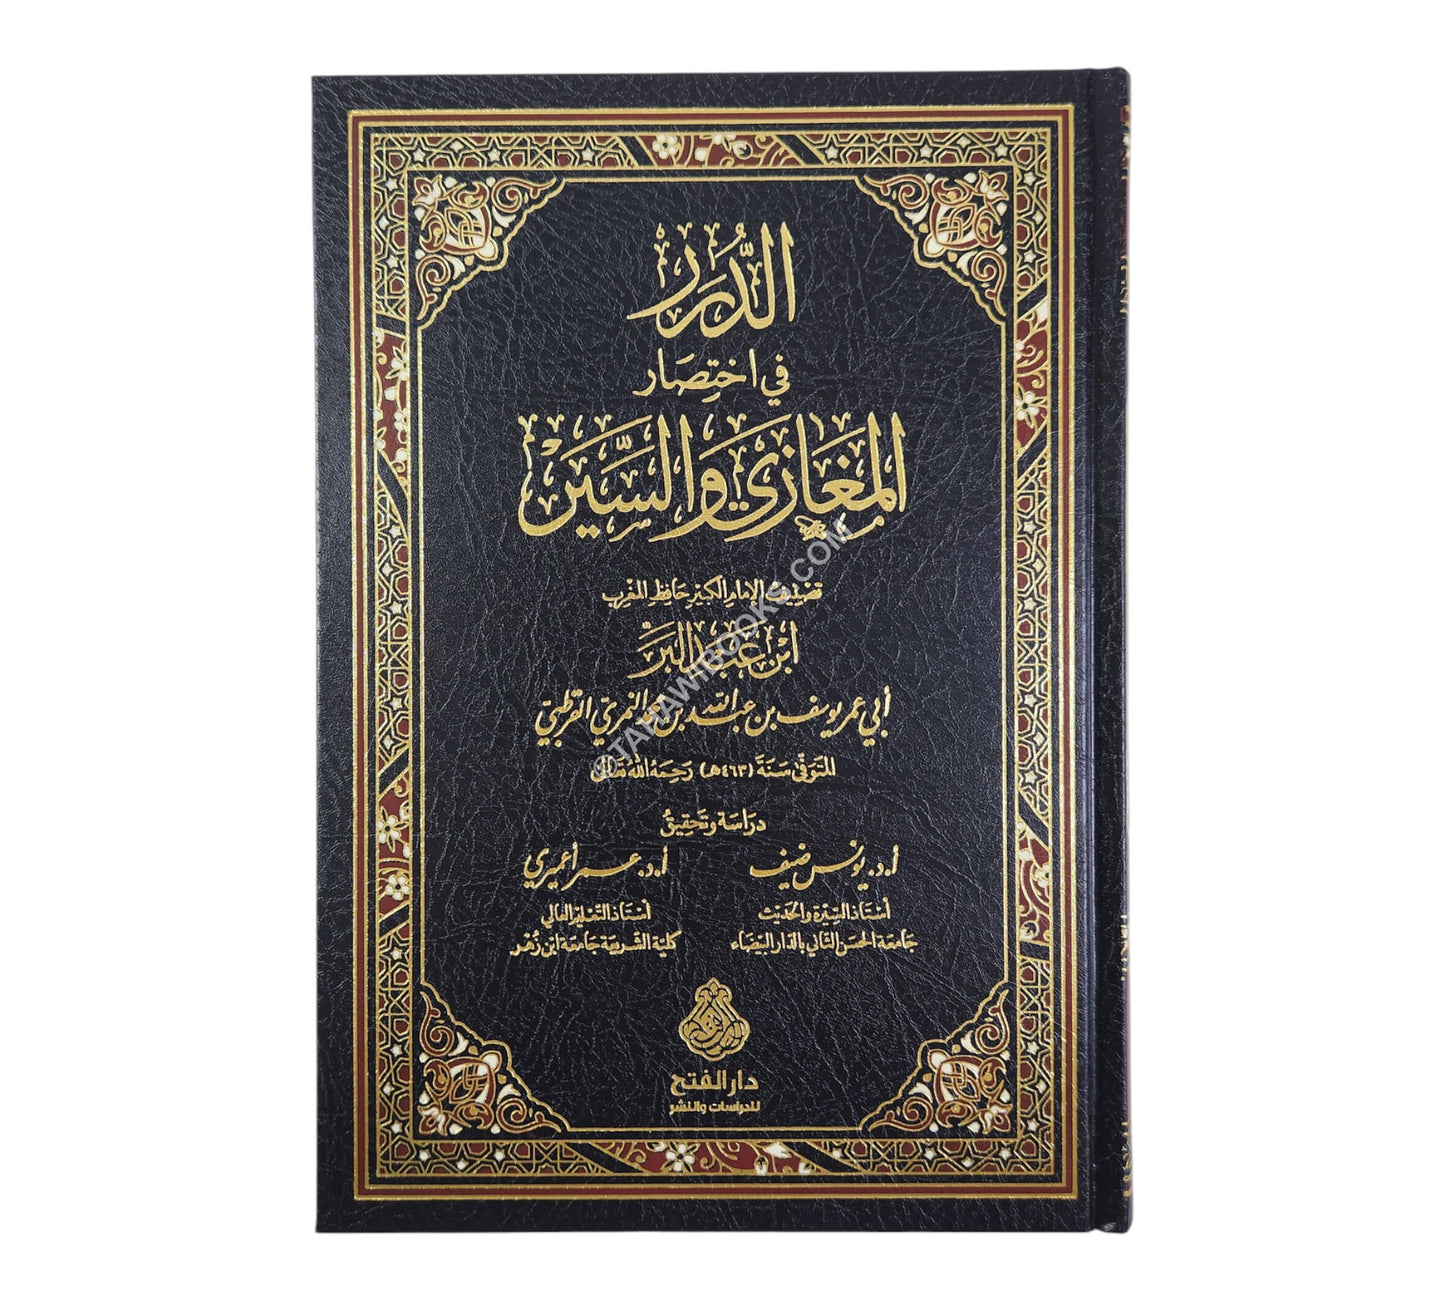 الدُّرَر
في اختِصَار
المغَازي والسِّيَر
تصنيف الإمام الكبير حَافِظ المغرب
ابن عبد البَرِّ
أبي عمر يوسف بن عبد الله بن النمري القرطبي
المتوفى سَنَة (٤٦٣هـ) رَحِمَهُ اللهُ تعالى
دراسَة وتحقيق
أ.د. يونس ضيف
أ.د. عمر أعميري
أستاذ السيرة والحديث
أستاذ التعليم العالي
جامعة الحسن الثاني بالدار البيضاء
كلية الشريعة جامعة ابن زهر
دار الفتح
للدراسات والنشر
©TAHAWIBOOKS.COM